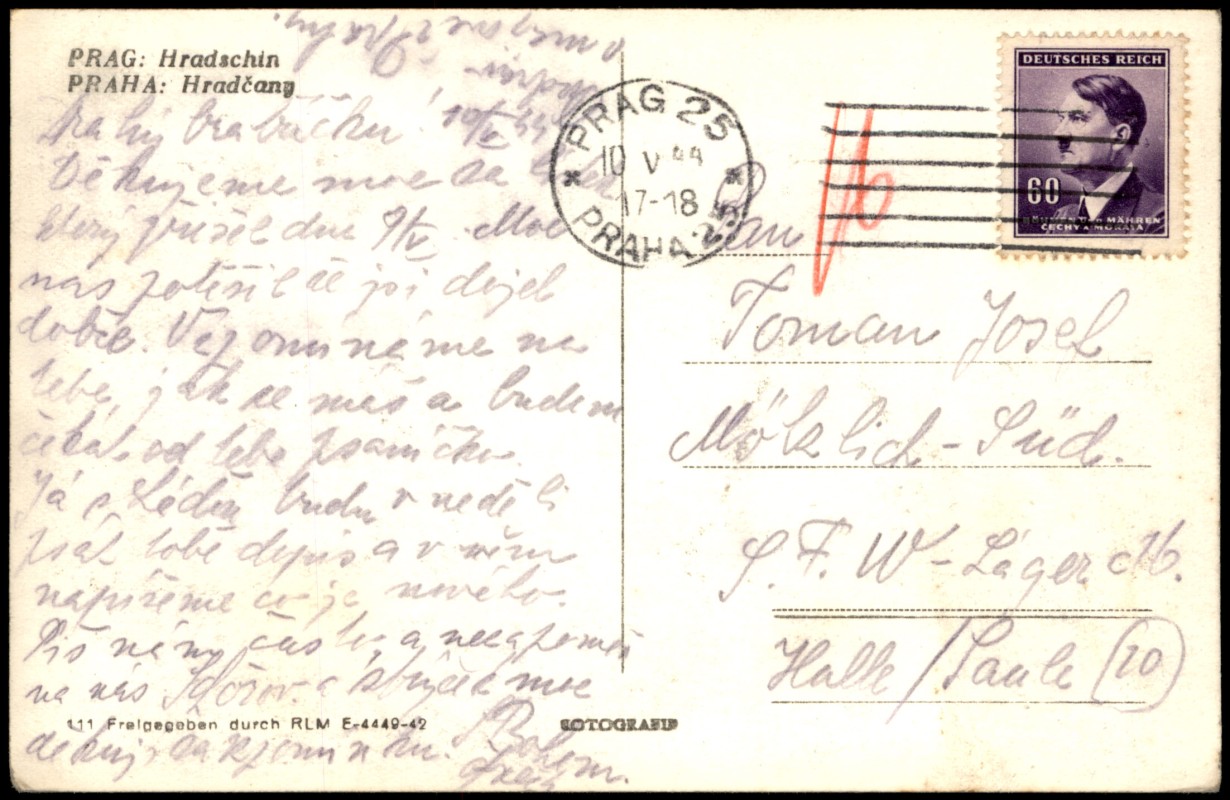 PRAG: Hradschin
PRAHA: Hradčany
Drahý bratříčku! 10/V 44
Děkujeme moc za
který přišel dne 9/V. Moc
nás potěšil že jsi dojel
dobře. Vzpomínáme na
tebe, jak se máš a budem
čekat od tebe psaníčko.
Já a budu v neděli
psát tobě dopis a v něm
napíšeme co je nového.
Piš nám často a nezapomeň
na nás. a moc
děkuj za
111 Freigegeben durch RLM E-4449-42
FOTOGRAFIE
PRAG 25
10 V 44
17-18
PRAHA 25
DEUTSCHES REICH
60
BÖHMEN UND MÄHREN
ČECHY A MORAVA
Pan
Toman Josef
Mötzlich-Süd.
S. F. W-Lager
Halle/Saale (10)